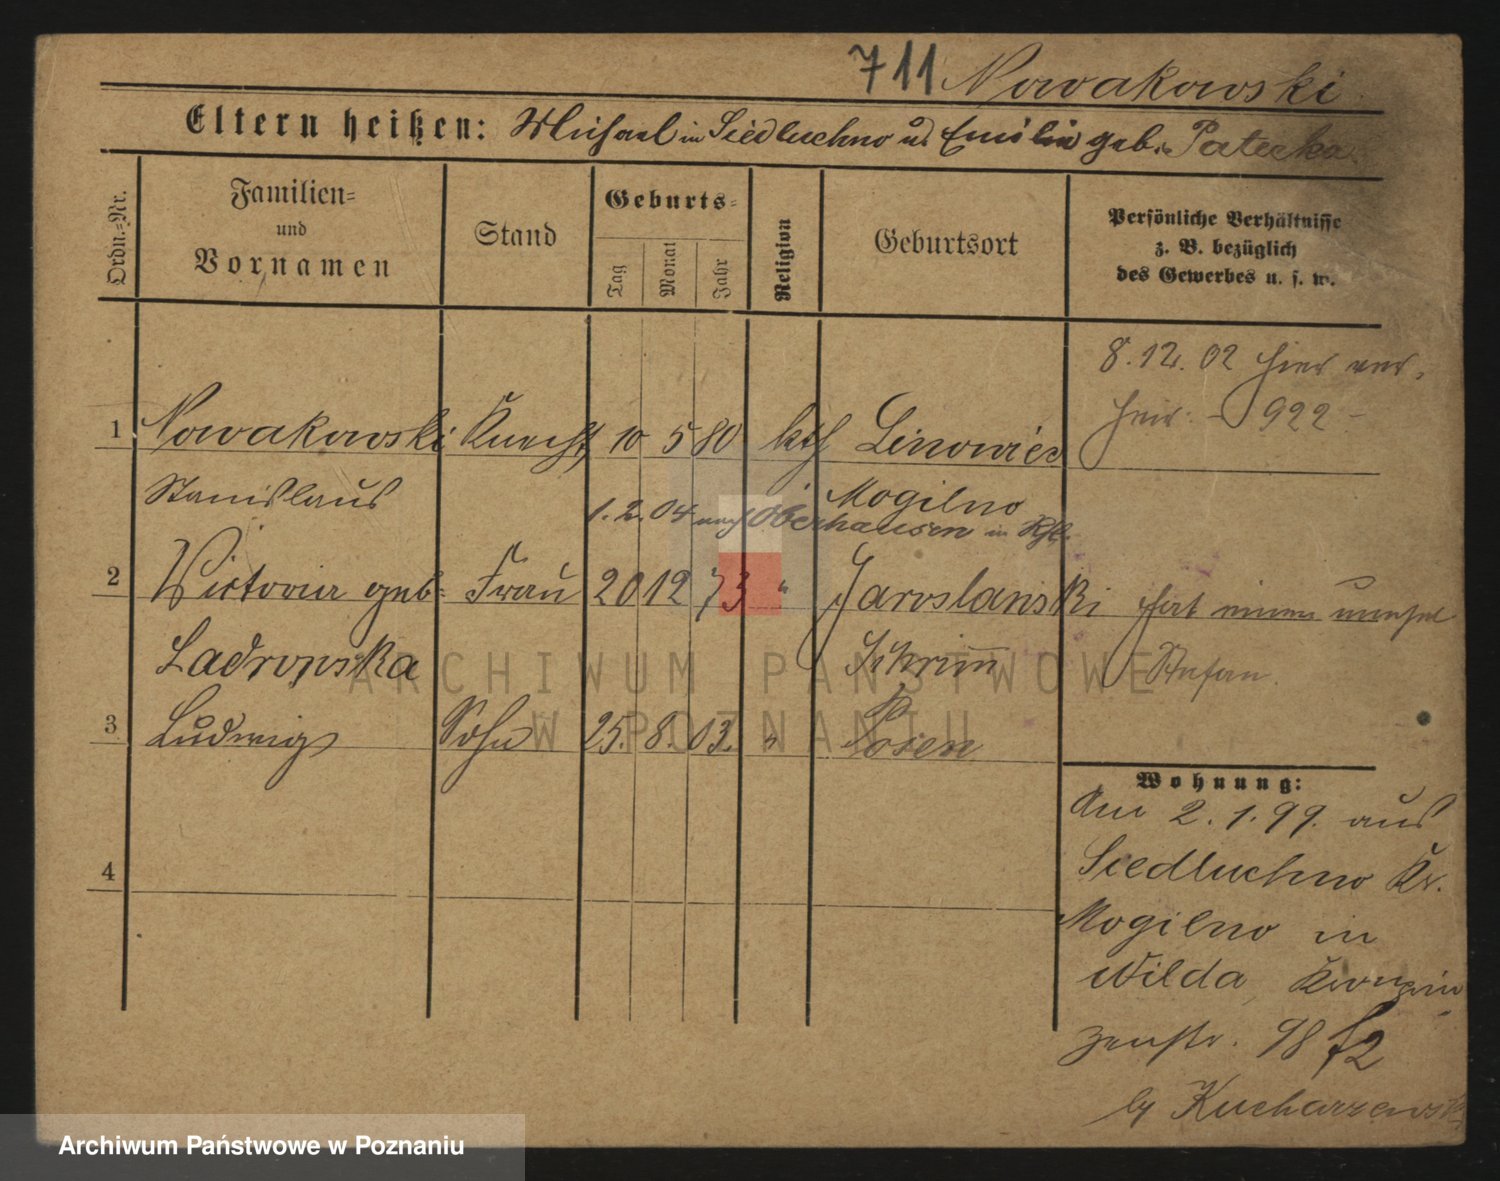 711 Nowakowski
Eltern heißen: Michael in Siedluchno u. Emilie geb. Patecka
Ordn.-Nr.
Familien-
und
Vornamen
Stand
Geburts-
Tag
Monat
Jahr
Religion
Geburtsort
Persönliche Verhältnisse
z. B. bezüglich
des Gewerbes u. s. w.
8.12.02 hier ver-
heir. - 922 -
1 Nowakowski Knecht 10 5 80 kth Linowiec
Stanislaus Mogilno
1.2.04 nach Oberhausen in
2 Victoria geb. Frau 20 12 73 " Jaroslawski hat einen
Ladrowska Schrimm Stefan
3 Ludwig Sohn 25. 8. 03. " Posen
4
Wohnung:
Am 2.1.99. aus
Siedluchno Kr.
Mogilno in
Wilda, Kronprin
zenstr. 98 f2
by Kucharzewski
ARCHIWUM PAŃSTWOWE
W POZNANIU
Archiwum Państwowe w Poznaniu